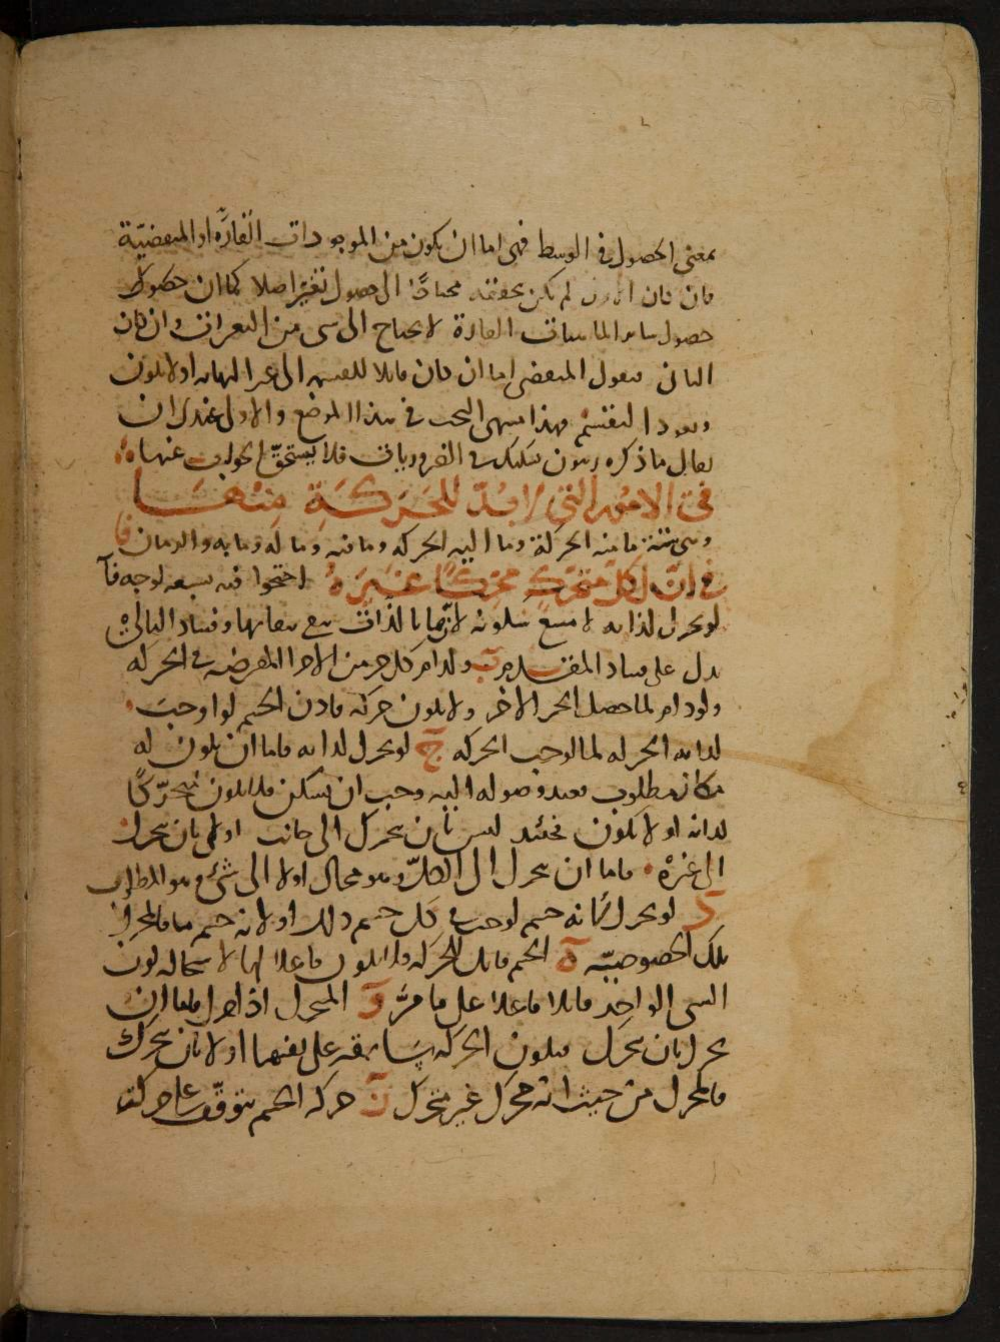 بمعنى الحصول في الوسط فهى اما ان يكون من الموجودات القارّه او المنقضيّة
فان كان الاول لم يكن محتاجًا الى حصول تغيّر اصلا كما ان حصول
حصول سائر الماهيات القارة لا يحتاج الى شى من التغيرات وان كان
الثانى فنقول المنقضى اما ان كان قابلا للقسمه الى غير النهايه اولا يكون
ويعود التقسيم فهذا منتهى البحث في هذا الموضع والاولى عندى ان
يقابل ما ذكره زينون تشكيك في الضروريات فلا يستحقّ الجواب عنها
فى الامور التى لا بدّ للحَرَكَةِ مِنْهَا
وهى ستة ما منه الحركة وما اليه الحركه وما فيه وما له وما به والزمان
في انّ لكلّ متحرّكٍ محرّكًا غَيرَهُ احتجوا فيه بسبعه اوجه آ
لو تحرك لذاته لامتنع سكونه لانّ ما بالذات يبقى ببقائها وفساد التالى
يدل على فساد المقدم ب ولدام كل جزء من الاجزا المفترضه في الحركه
ولو دام لما حصل الجزء الاخر ولا يكون حركه فاذن الجسم لو اوجب
لذاته الحركه لما اوجب الحركه ج لو تحرك لذاته فاما ان يكون له
مكان مطلوب فعند وصوله اليه وجب ان يسكن فلا يكون متحرّكًا
لذاته او لا يكون فحينئذ ليس بان يتحرك الى جانب اولى بان يتحرك
الى غيره فاما ان يتحرك الى الكلّ وهو محال اولا الى شئ وهو المطلوب
د لو تحرك لانه جسم لوجب في كل جسم ذلك او لانه جسم ما فالمحرك
تلك الخصوصيّه ه الجسم قابل للحركه فلا يكون فاعلا لها لاستحاله كون
الشى الواحد قابلا فاعلا على ما مرّ و المحرك اذا حرك فاما ان
يحرك بان يتحرك فيكون الحركه سابقه على نفسها او لا بان يتحرك
فالمحرك من حيث انه محرك غير متحرك ز حركه الجسم يتوقّف على حركته